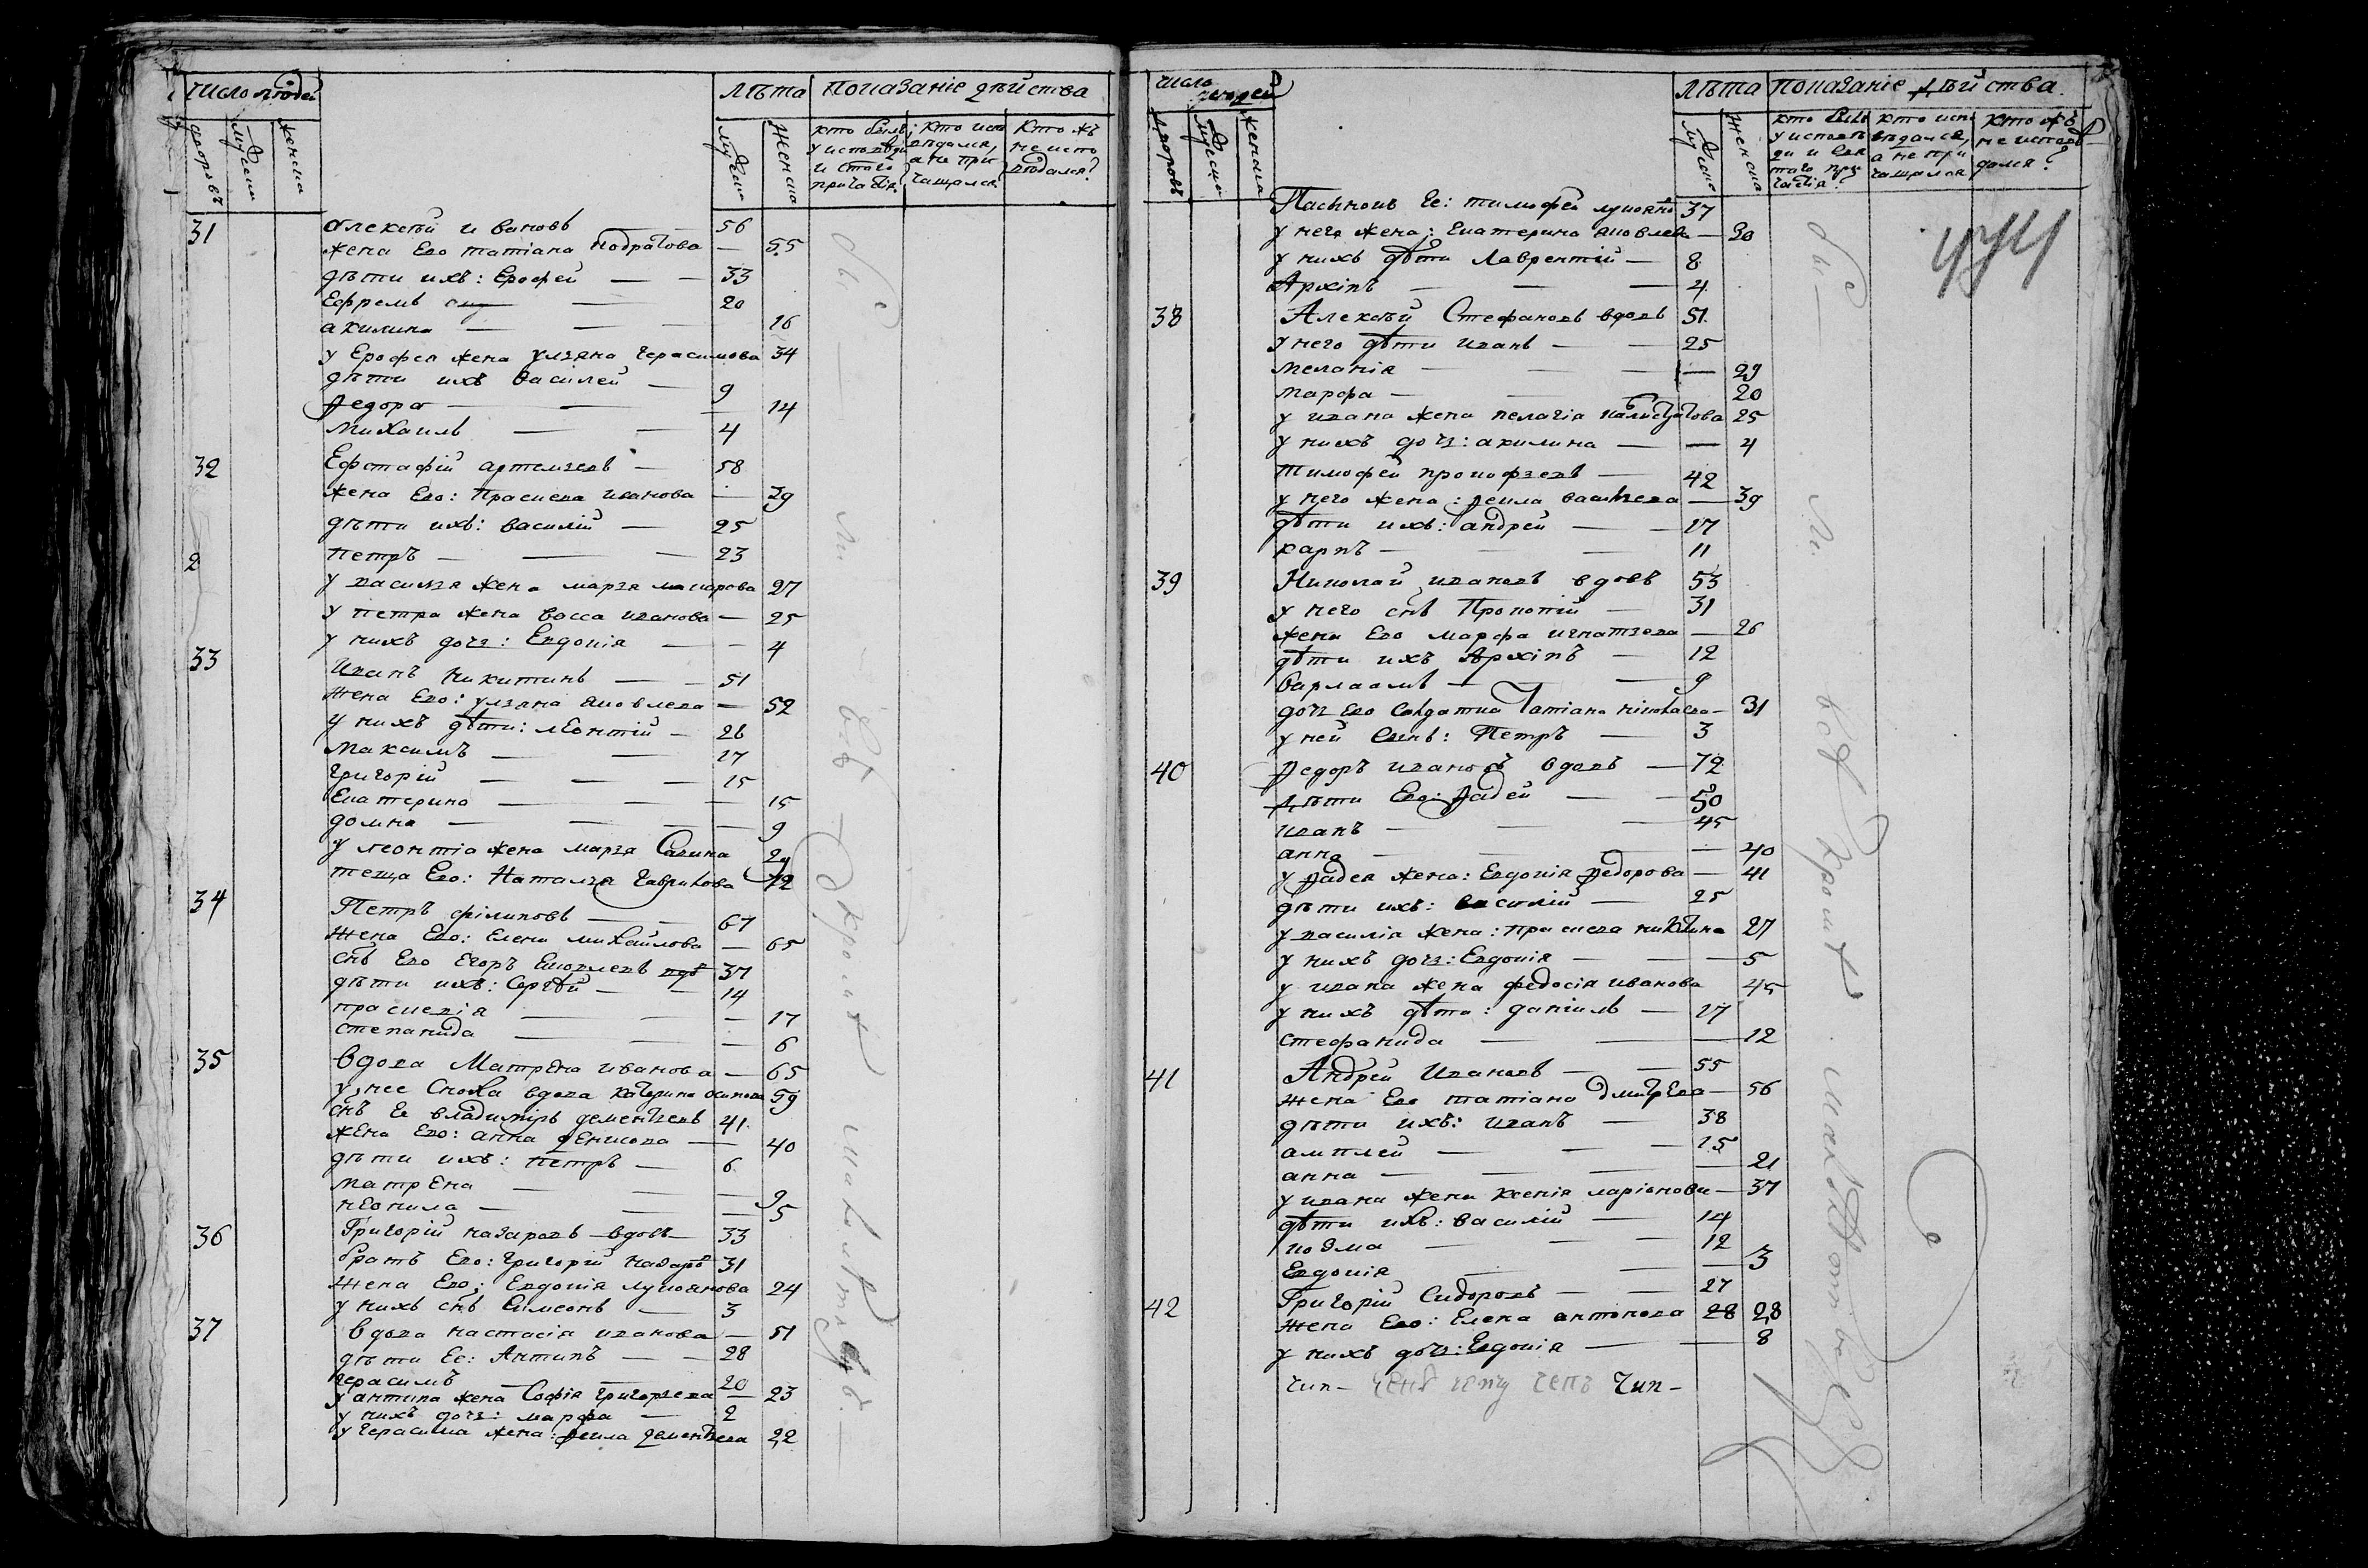 число людей
лѣта показанїе дѣйства
дворовъ
мужеска
женска
мужеска
женска
кто былъ
у исповѣди
и стаго
причастія?
кто испо
вѣдался,
а не при
чащался
кто жъ
не испо
вѣдался?
31 Алексѣй ивановъ — 56
жена Его татіана — 55
дѣти ихъ: Ерофей — — 33
Ефремъ — 20
акилина — — — 16
у Ерофея жена ульяна Герасимова 34
дѣти ихъ василей — 9
Федора — — — 14
михаилъ — — 4
32 Ефстафій артемьевъ — 58
жена Его: Прасковья иванова — 39
дѣти ихъ: василій — 25
2 петръ — — — 23
у василья жена марья макарова 27
у петра жена васса иванова — 25
у нихъ дочь: Евдокія — — 4
33 Иванъ никитинъ — — 51
жена Его: ульяна яковлева — 52
у нихъ дѣти: леонтій — 26
максимъ — — 17
григорій — — — 15
Екатерина — — — 15
домна — — — — 9
у леонтія жена марья Савина 29
теща Его: Наталья Гаврилова 72
34 Петръ филиповъ — — 67
жена Его: Елена михайлова — 65
снъ Его Егоръ вдо 37
дѣти ихъ: Сергѣй — — 14
прасковія — — — 17
степанида — — — 6
35 вдова Матрена иванова — 65
у нее Сноха вдова Катерина осипова 59
снъ Ее владимиръ дементьевъ 41
жена Его: анна денисова — 40
дѣти ихъ: петръ — 6
матрена — — — 9
неонила — — — 5
36 Григорій назаровъ вдовъ 33
братъ Его: григорій назаровъ 31
жена Его: Евдокія лукоянова 24
у нихъ снъ Симеонъ — 3
37 вдова настасія иванова — 51
дѣти Ее: Антипъ — — 28
герасимъ — — 20
у антипа жена Софія григорьева — 23
у нихъ дочь: марфа — 2
у герасима жена: Фекла дементьева 22
бы — ли — всѣ — окромѣ малолѣтнихъ —
число людей
лѣта показаніе дѣйства.
дворовъ
мужеска
женска
мужеска
женска
кто былъ
у исповѣ
ди и свя
таго при
частія?
кто испо
вѣдался,
а не при
чащался
кто жъ
не исповѣ
дался?
Пасынокъ Ее: тимофей лукоянъ 37
у него жена: Екатерина яковлева — 30
у нихъ дѣти Лаврентій — 8
Архіпъ — — — 4
38 Алексѣй Стефановъ вдовъ 51
у него дѣти иванъ — — 25
меланія — — — — 29
марфа — — 20
у ивана жена пелагія калистратова 25
у нихъ дочь: акилина — — 4
тимофей прокофьевъ — 42
у него жена: Фекла васильева — 39
дѣти ихъ: андрей — — 17
карпъ — — — 11
39 Николай ивановъ вдовъ 53
у него снъ Прокопій — 31
жена Его марфа игнатьева — 26
дѣти ихъ Архіпъ — 12
варлаамъ — — 9
дочь Его Солдатка Татіана николаева — 31
у ней Сынъ: Петръ — 3
40 Федоръ ивановъ вдовъ — 72
дѣти Его: Фадей — — 50
иванъ — — — 45
анна — — — — 40
у Фадея жена: Евдокія Федорова — 41
дѣти ихъ: василій — 25
у василія жена: прасковья никитина 27
у нихъ дочь: Евдокія — — — 5
у ивана жена федосія иванова 45
у нихъ дѣти: даніилъ — 17
стефанида — — — 12
41 Андрей Ивановъ — — 55
жена Его татіана дмитрева — 56
дѣти ихъ: иванъ — 38
амплей — — — 15
анна — — — 21
у ивана жена ксенія ларіонова — 37
дѣти ихъ: василій — 14
козма — — — 12
Евдокія — — — 3
42 Григорій Сидоровъ — — 27
жена Его: Елена антонова 28 28
у нихъ дочь: Евдокія — — 8
чип — чип —
бы — ли всѣ кромѣ малолѣтнихъ